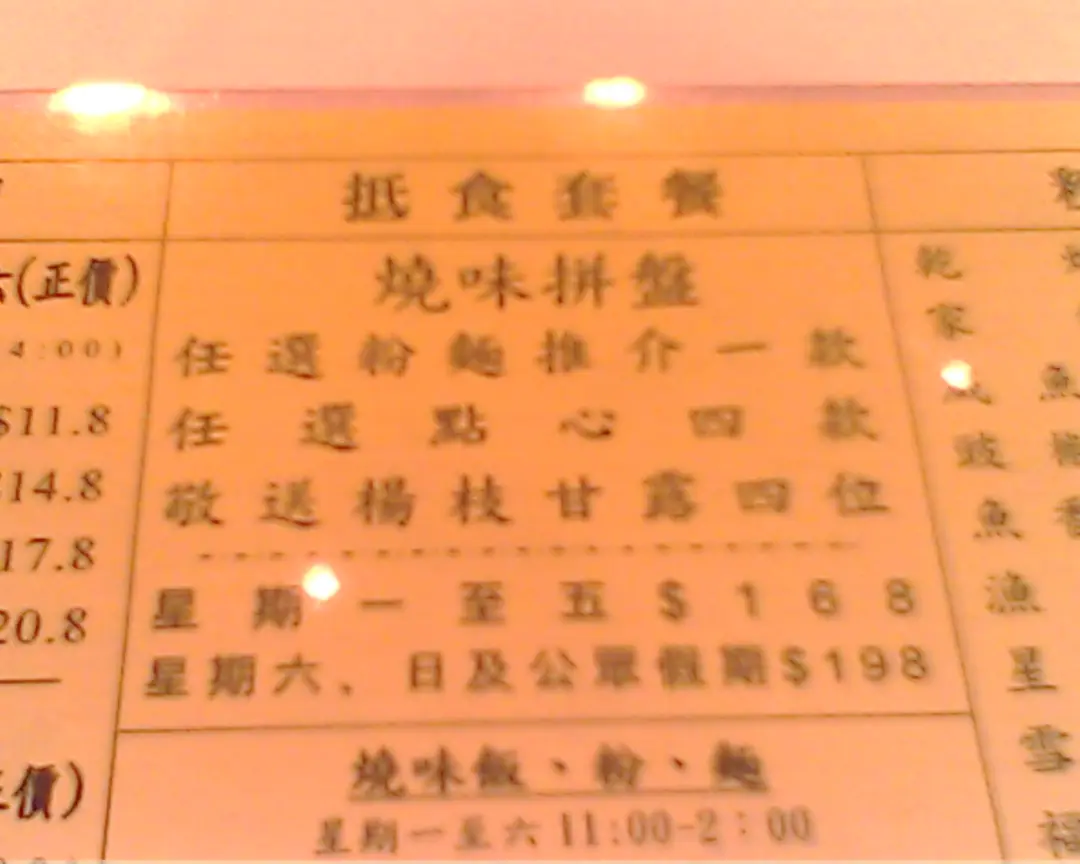 抵食套餐
燒味拼盤
任選粉麵推介一款
任選點心四款
敬送楊枝甘露四位
星期一至五$168
星期六、日及公眾假期$198
燒味飯、粉、麵
星期一至六 11:00-2:00
(正價)
4:00)
$11.8
14.8
17.8
20.8
價)
乾
家
魚
豉
魚
漁
星
雪
福